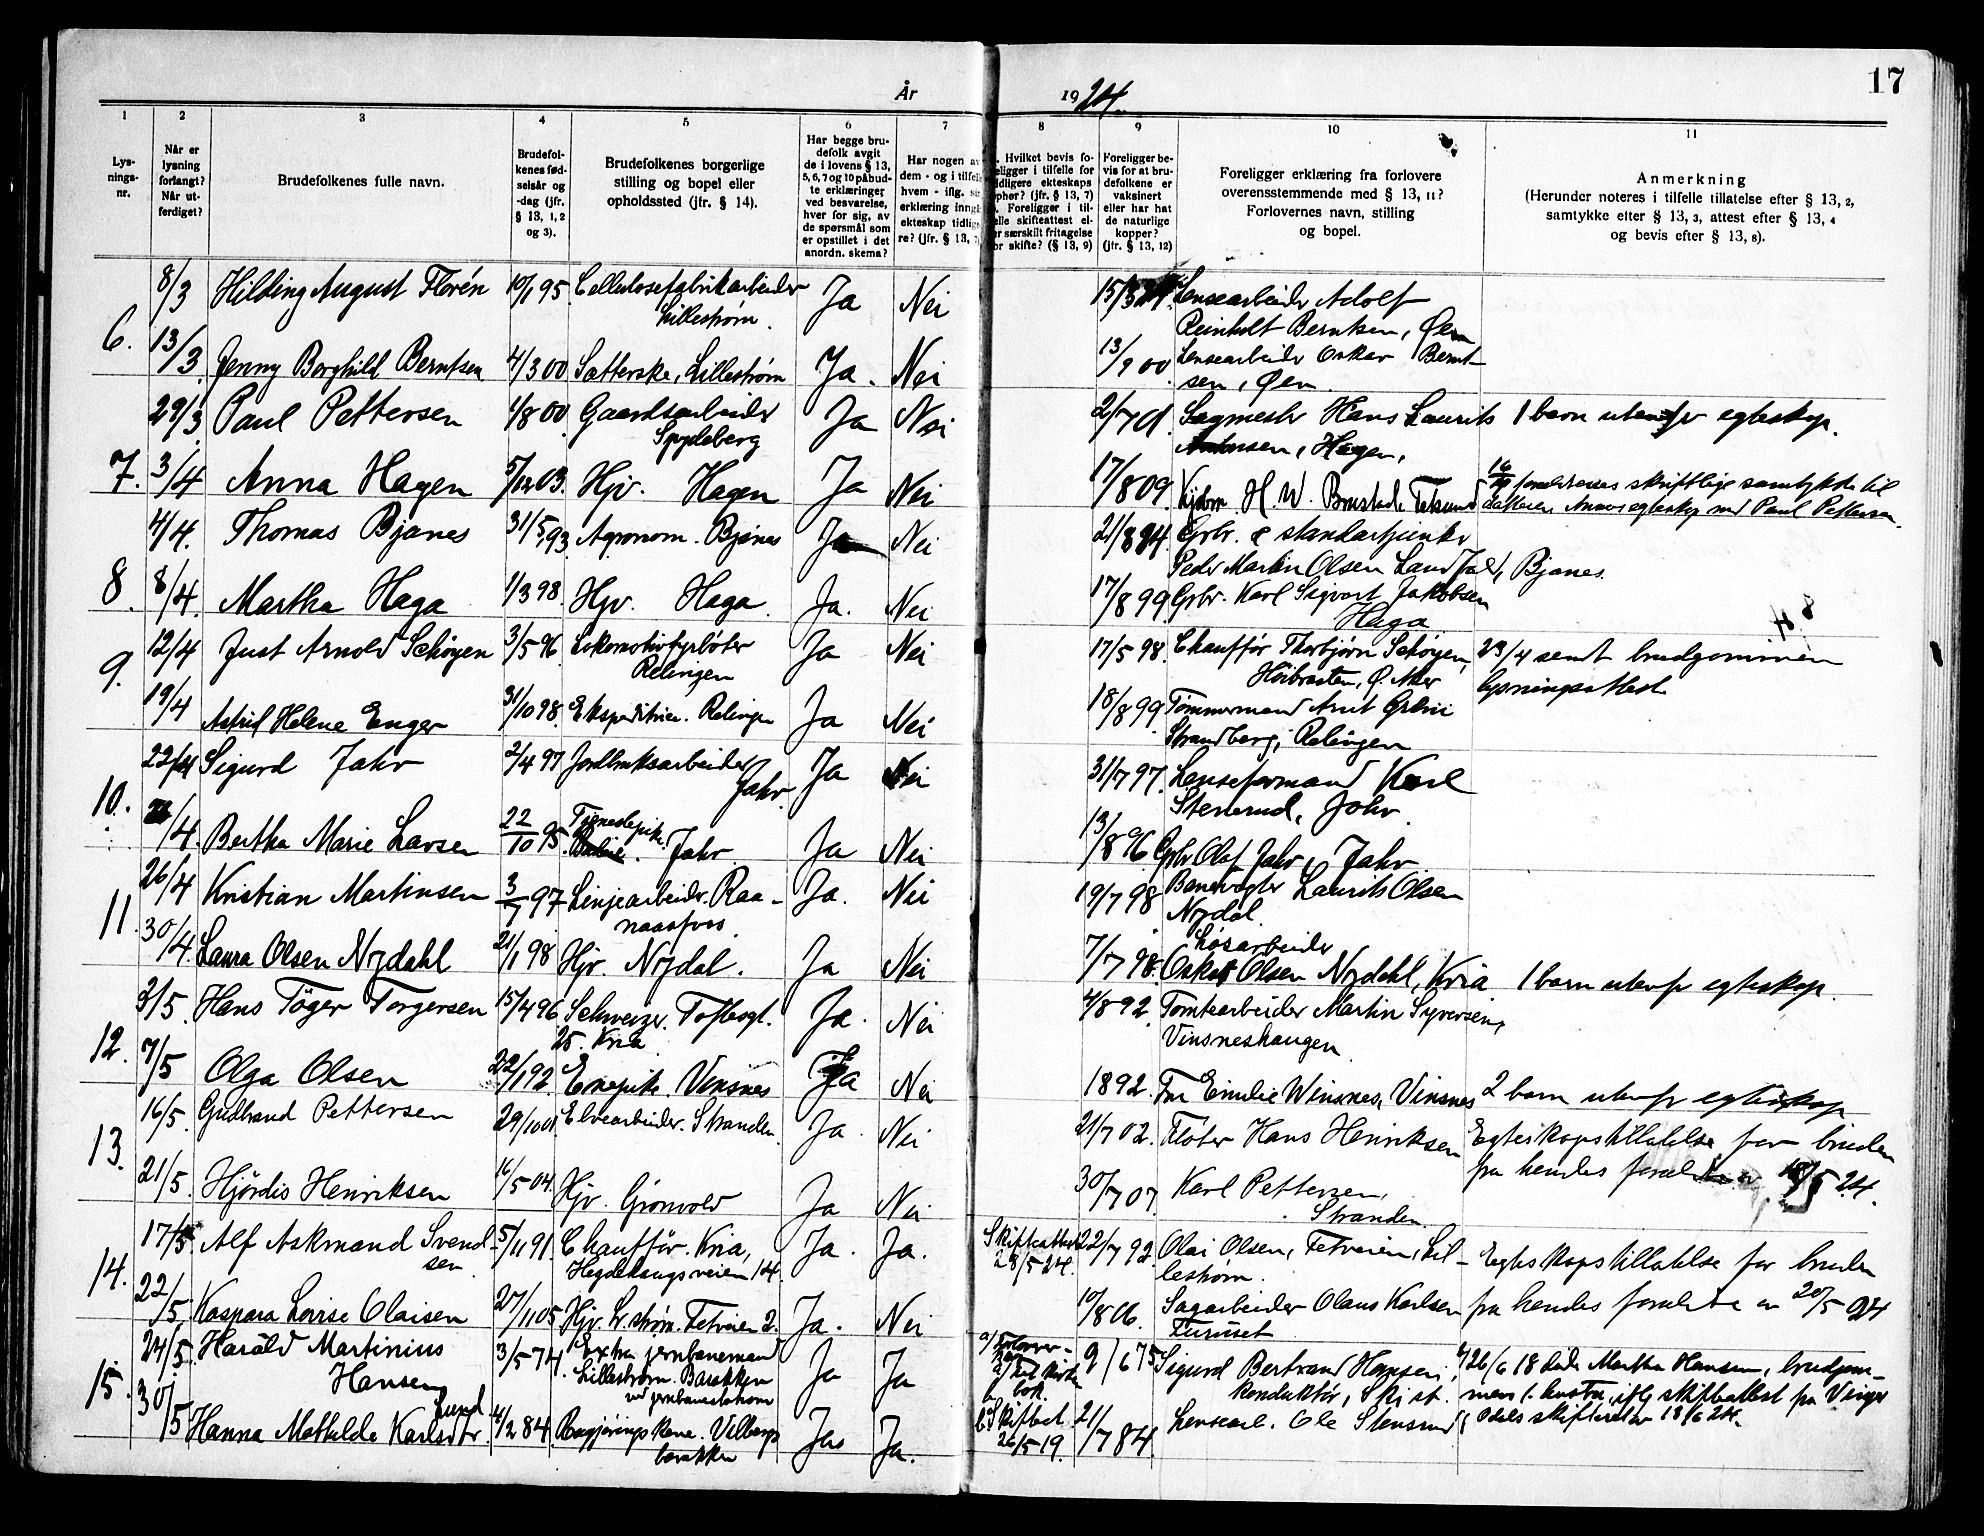 17
År 1924.
1 2 3 4 5 6 7 8 9 10 11
Lys-
nings-
nr.
Når er
lysning
forlangt?
Når ut-
ferdiget?
Brudefolkenes fulle navn.
Brudefol-
kenes fød-
selsår og
-dag (jfr.
§ 13, 1, 2
og 3).
Brudefolkenes borgerlige
stilling og bopel eller
opholdssted (jfr. § 14).
Har begge bru-
defolk avgit
de i lovens § 13,
5, 6, 7 og 10 påbud-
te erklæringer
ved besvarelse,
hver for sig, av
de spørsmål som
er opstillet i det
anordn. skema?
Har nogen av
dem - og i tilfelle
hvem - iflg. sin
erklæring inngått
ekteskap tidlige-
re? (jfr. § 13,
Hvilket bevis fo-
religger i tilfelle for
tidligere ekteskaps
opphør? (jfr. § 13, 7)
Foreligger i til-
felle skifteattest el-
er særskilt fritagelse
for skifte? (§ 13, 9)
Foreligger be-
vis for at bru-
defolkene er
vaksinert
eller har hat
de naturlige
kopper?
(jfr. § 13, 12)
Foreligger erklæring fra forlovere
overensstemmende med § 13, 11?
Forlovernes navn, stilling
og bopel.
Anmerkning
(Herunder noteres i tilfelle tillatelse efter § 13, 2,
samtykke efter § 13, 3, attest efter § 13, 4
og bevis efter § 13, 8).
6. 8/3 Hilding August Florén 10/1 95 Cellulosefabrikarbeider Ja Nei Lensearbeider Adolf
Lillestrøm. Reinholt Berntsen, Øen
13/3 Jenny Borghild Berntsen 4/3 00 Lillestrøm Ja. Nei 13/9 00 Lensearbeider Oskar Bernt-
sen, Øen.
29/3 Paul Pettersen 1/8 00 Gaardsarbeider Ja Nei Sagmester Hans Laurits 1 barn utenfor egteskap.
Spydeberg Hagen,
7. 3/4 Anna Hagen 5/12 03. Hjv. Hagen Ja Nei 17/8 09 H. W. Fetsund skriftlige samtykke til
datteren Annas egteskap med Paul Pettersen.
4/4. Thomas Bjanes 31/5 93 Agronom. Bjanes Ja Nei 21/8 94. Grbr. & standartjunker
Peder Martin Olsen Bjanes.
8. 8/4. Martha Haga 1/3 98 Hjv. Haga. Ja. Nei 17/8 99 Grbr. Karl Sigvart Jakobsen
Haga
9. 12/4 Just Arnold Schøyen 3/5 96 Lokomotivfyrbøter Ja Nei 17/5 98. Chauffør Thorbjørn Schøyen, 23/4 sendt brudgommen
Relingen Høibraaten, Ø. Aker lysningsattest
19/4 Astrid Helene Enger 31/10 98. Ekspeditrice. Relingen Ja Nei 18/8 99 Tømmermand Arnt
Strandberg, Relingen
10. 22/4 Sigurd Jahr 2/4 97 Jordbruksarbeider Ja Nei 31/7 97. Lenseformand Karl
Jahr. Stenerud, Jahr.
/4. Bertha Marie Larsen 22/10 95. Tjenestepike. Jahr. Ja Nei 13/8 96 Grbr Olaf Jahr, Jahr
11. 26/4 Kristian Martinsen 3/7 97 Linjearbeider. Raa- Ja. Nei 19/7 98 Banevogter Laurits Olsen
naasfoss. Nydal.
30/4. Laura Olsen Nydahl 21/1 98 Hjv. Nydal. Ja Nei 7/7 98. Løsarbeider
Oskar Olsen Nydahl, Kria 1 barn utenfor egteskap.
12. 3/5. Hans Töger Torgersen 15/4 96 Schweizer. Toftesgt. Ja. Nei 4/8 92 Tomtearbeider Martin Syversen,
25. Kria Vinsneshaugen.
7/5 Olga Olsen 22/1 92. Enepike. Vinsnes Ja Nei 1892. Fru Emilie Winsnes, Vinsnes 2 barn utenfor egteskap
13. 16/5. Gudbrand Pettersen 29/10 01. Elvearbeider. Stranden Ja. Nei 21/7 02. Fløter Hans Henriksen Egteskapstillatelse for bruden
fra hendes forældre 24.
21/5. Hjördis Henriksen 16/5 04. Hjv. Grönvold Ja Nei 30/7 07 Karl Pettersen,
Stranden.
14. 17/5 Alf Askmand Svend- 5/11 91. Chauffør. Kria, Ja. Ja. Skifteattest 22/7 92 Olai Olsen, Fetveien, Lil- Egteskapstillatelse for bruden
sen Hegdehaugsveien 14. 28/5 24. lestrøm.
22/5. Kaspara Lovise Olaisen 27/11 05 Hjv. Lr.strøm. Fetveien 2. Ja. Nei 10/8 06. Sagarbeider Olaus Karlsen fra hendes forældre av 20/5 24
Furuset
15. 24/5. Harald Martinius 3/5 74. Extra jernbanemand Ja Ja 9/6 75 Sigurd Bertrand Hansen, 26/6 18 døde Martha Hansen, brudgom-
Hansen Lillestrøm. Barakken konduktør, Ski st. mens 1. hustru, iflg skifteattest fra Vinger
ved jernbanestationen
30/5 Hanna Mathilde Karlsdtr. Lund 4/2 84. Rengjøringskone. Ja Ja. Skifteat. 26/5 19. 21/7 84. Lensearb. Ole Stensrud Odals skifteretter 18/6 24.
barakken